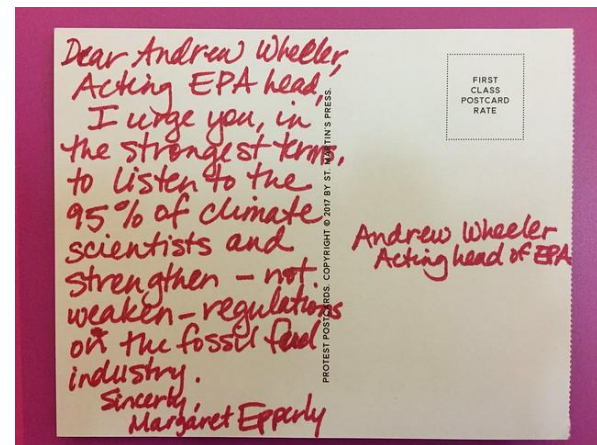 Dear Andrew Wheeler,
Acting EPA head,
I urge you, in
the strongest terms,
to listen to the
95% of climate
scientists and
strengthen – not
weaken – regulations
on the fossil fuel
industry.
Sincerly,
Margaret Epperly
PROTEST POSTCARDS. COPYRIGHT © 2017 BY ST. MARTIN'S PRESS.
FIRST
CLASS
POSTCARD
RATE
Andrew Wheeler
Acting head of EPA